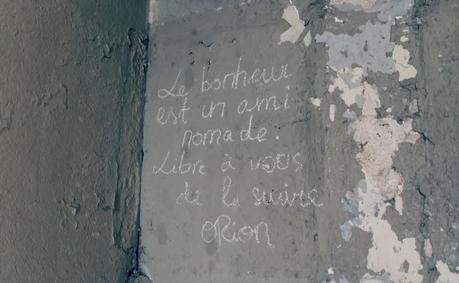 Le bonheur
est un ami
nomade.
Libre à vous
de le suivre
ORion